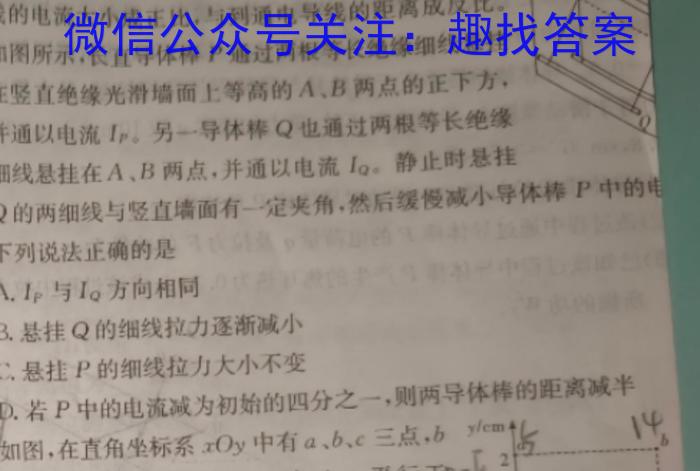 的电流大小成正比,与到通电导线的距离成反比。
微信公众号关注:趣找答案
如图所示,长直导体棒P通过两根等长绝缘细线
在竖直绝缘光滑墙面上等高的A、B两点的正下方,
并通以电流 I_P。另一导体棒Q也通过两根等长绝缘
细线悬挂在A、B两点,并通以电流 I_Q。静止时悬挂
Q的两细线与竖直墙面有一定夹角,然后缓慢减小导体棒P中的电
下列说法正确的是
A. I_P 与 I_Q 方向相同
B. 悬挂Q的细线拉力逐渐减小
C. 悬挂P的细线拉力大小不变
D. 若P中的电流减为初始的四分之一,则两导体棒的距离减半
如图,在直角坐标系xOy中有a、b、c三点,b
Q
y/cm
2
14
b